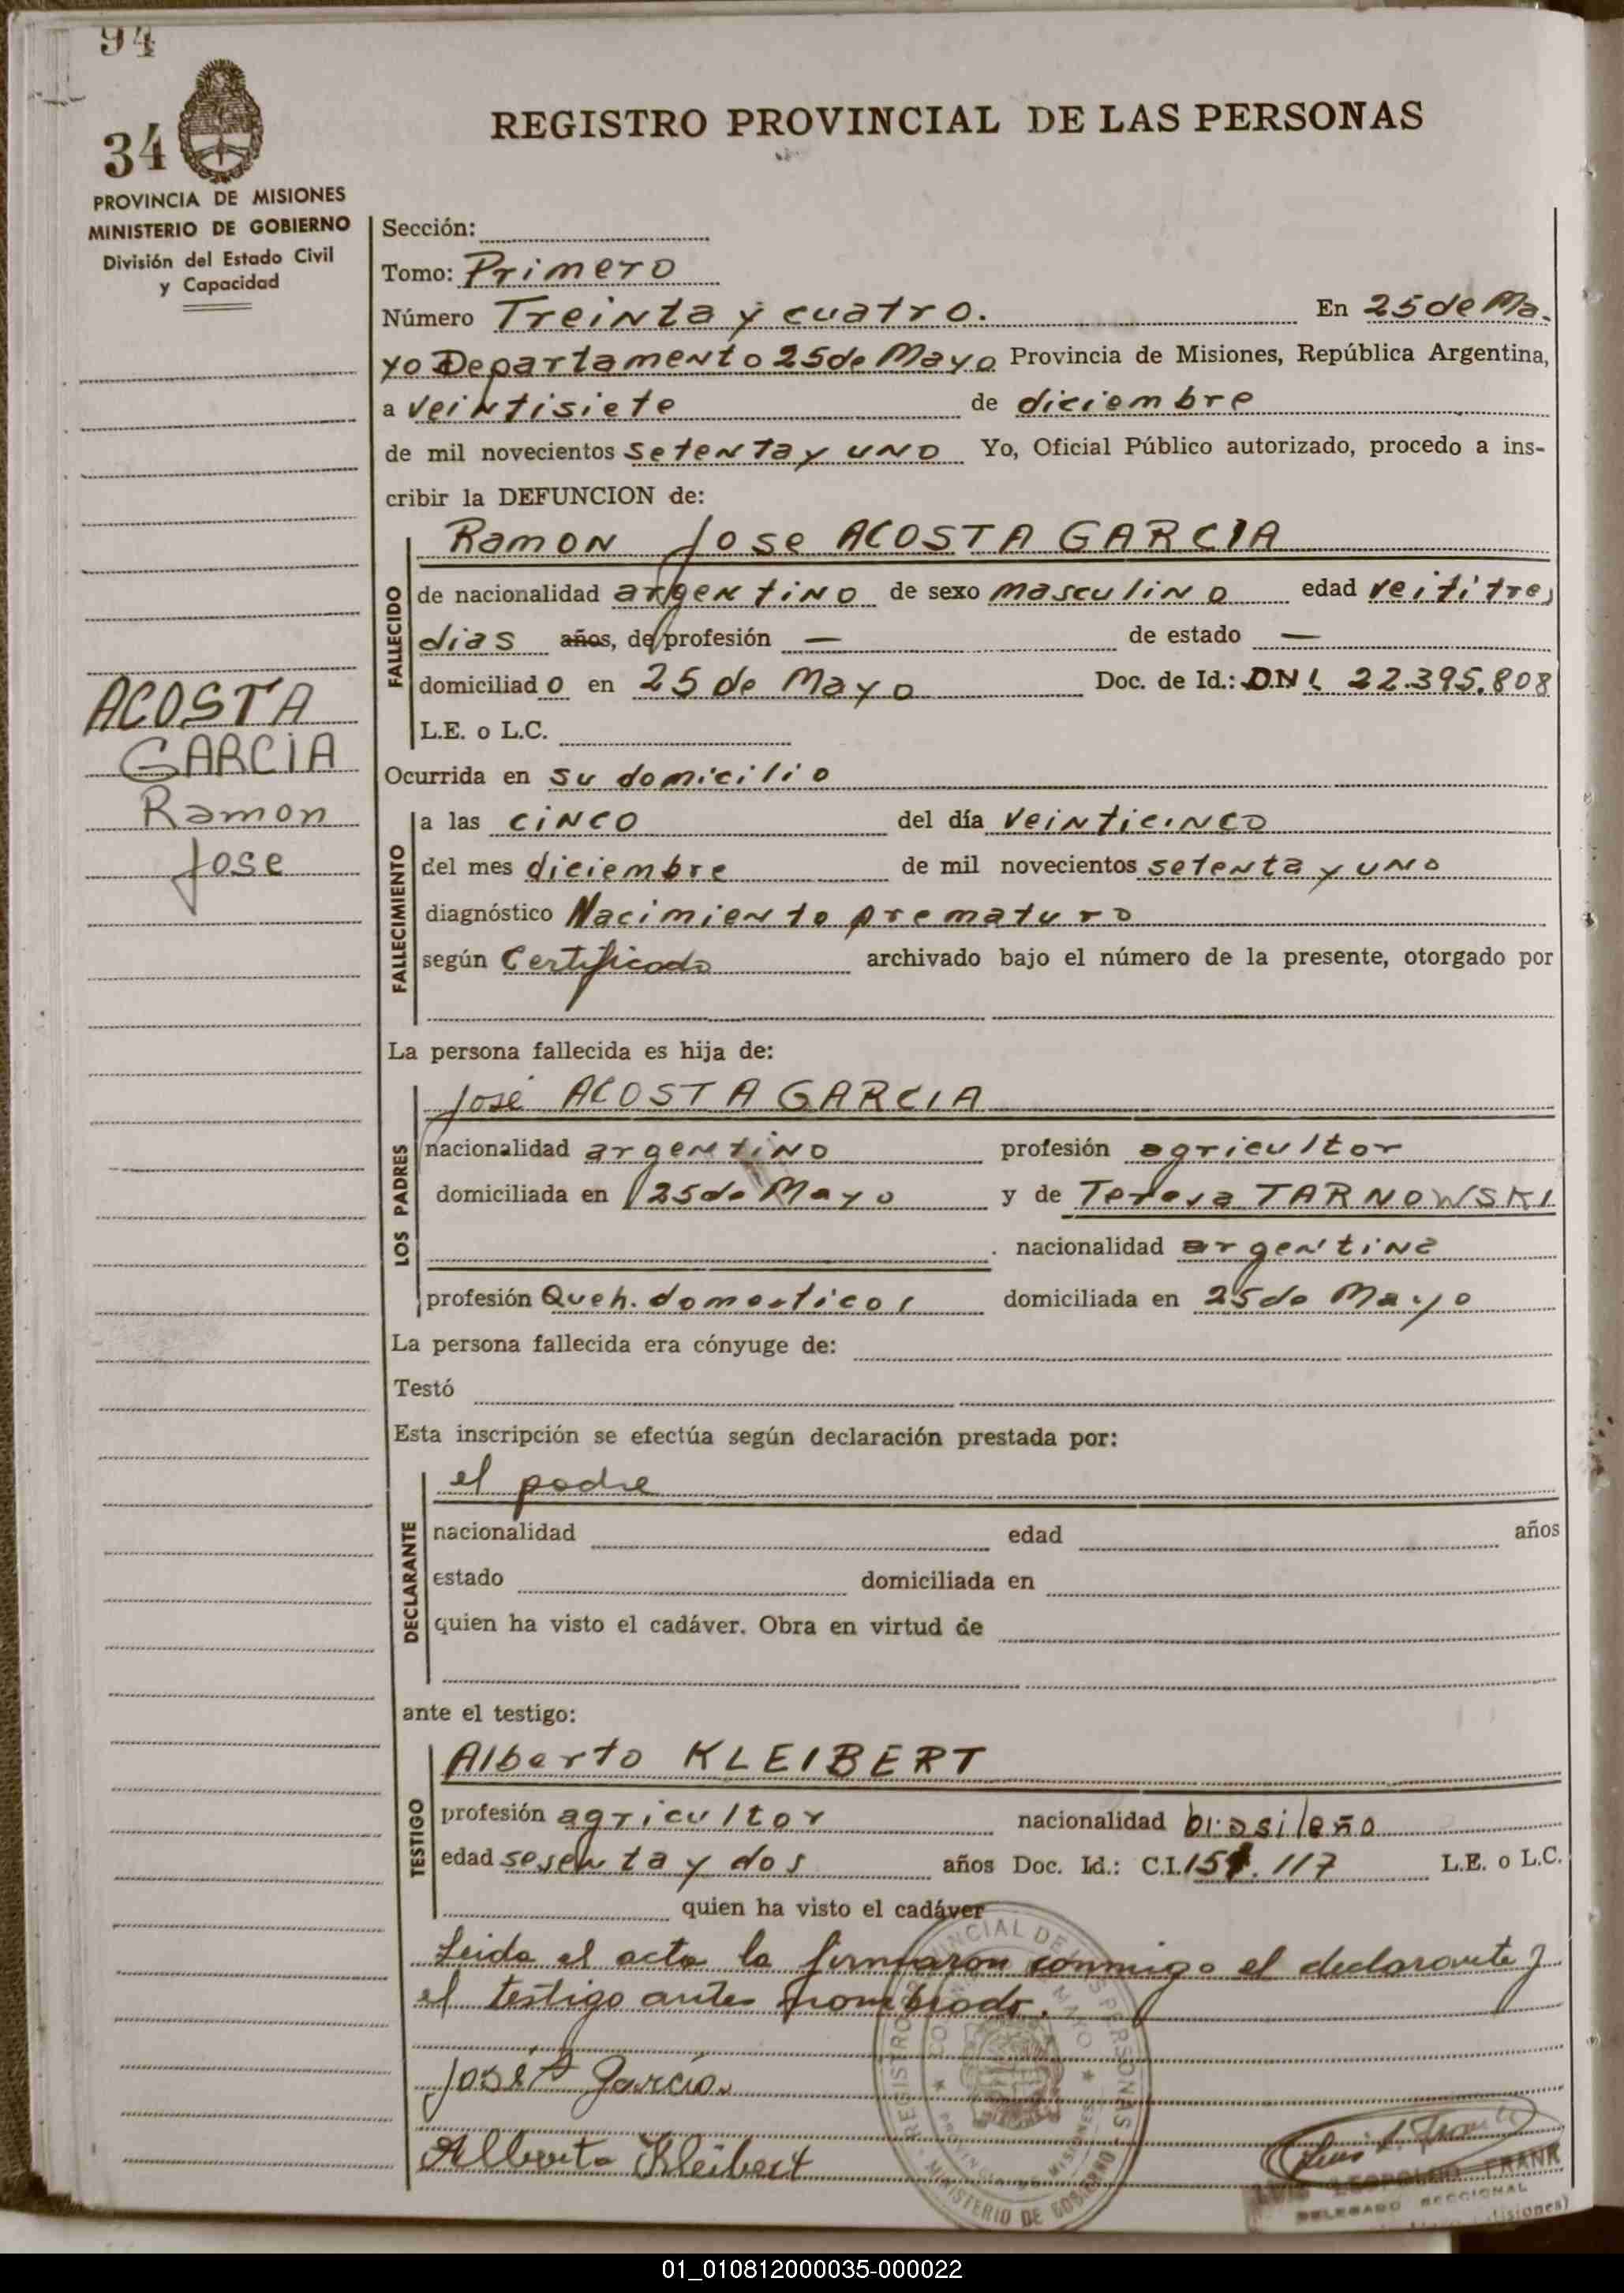 94
34
PROVINCIA DE MISIONES
MINISTERIO DE GOBIERNO
División del Estado Civil
y Capacidad
REGISTRO PROVINCIAL DE LAS PERSONAS
Sección:
Tomo: Primero
Número Treinta y cuatro. En 25 de Ma.
yo Departamento 25 de Mayo Provincia de Misiones, República Argentina,
a veintisiete de diciembre
de mil novecientos setenta y uno Yo, Oficial Público autorizado, procedo a ins-
cribir la DEFUNCION de:
FALLECIDO
Ramon Jose ACOSTA GARCIA
de nacionalidad argentino de sexo masculino edad veititres
dias años, de profesión — de estado —
domiciliado en 25 de Mayo Doc. de Id.: D.N.I. 22.395.808
L.E. o L.C.
ACOSTA
GARCIA
Ramon
Jose
Ocurrida en su domicilio
FALLECIMIENTO
a las cinco del día veinticinco
del mes diciembre de mil novecientos setenta y uno
diagnóstico Nacimiento prematuro
según Certificado archivado bajo el número de la presente, otorgado por
La persona fallecida es hija de:
LOS PADRES
José ACOSTA GARCIA
nacionalidad argentino profesión agricultor
domiciliada en 25 de Mayo y de Teresa TARNOWSKI
nacionalidad argentina
profesión Queh. domesticos domiciliada en 25 de Mayo
La persona fallecida era cónyuge de:
Testó
Esta inscripción se efectúa según declaración prestada por:
DECLARANTE
el padre
nacionalidad edad años
estado domiciliada en
quien ha visto el cadáver. Obra en virtud de
ante el testigo:
TESTIGO
Alberto KLEIBERT
profesión agricultor nacionalidad brasileño
edad sesenta y dos años Doc. Id.: C.I. 117 L.E. o L.C.
quien ha visto el cadáver
Leida el acta la firmaron conmigo el declarante y
el testigo antes nombrado.
José A Garcia
Alberto Kleibert
REGISTRO PROVINCIAL DE LAS PERSONAS
MINISTERIO DE GOBIERNO
PROVINCIA DE MISIONES
LUIS LEOPOLDO FRANK
DELEGADO SECCIONAL
(Misiones)
01_010812000035-000022